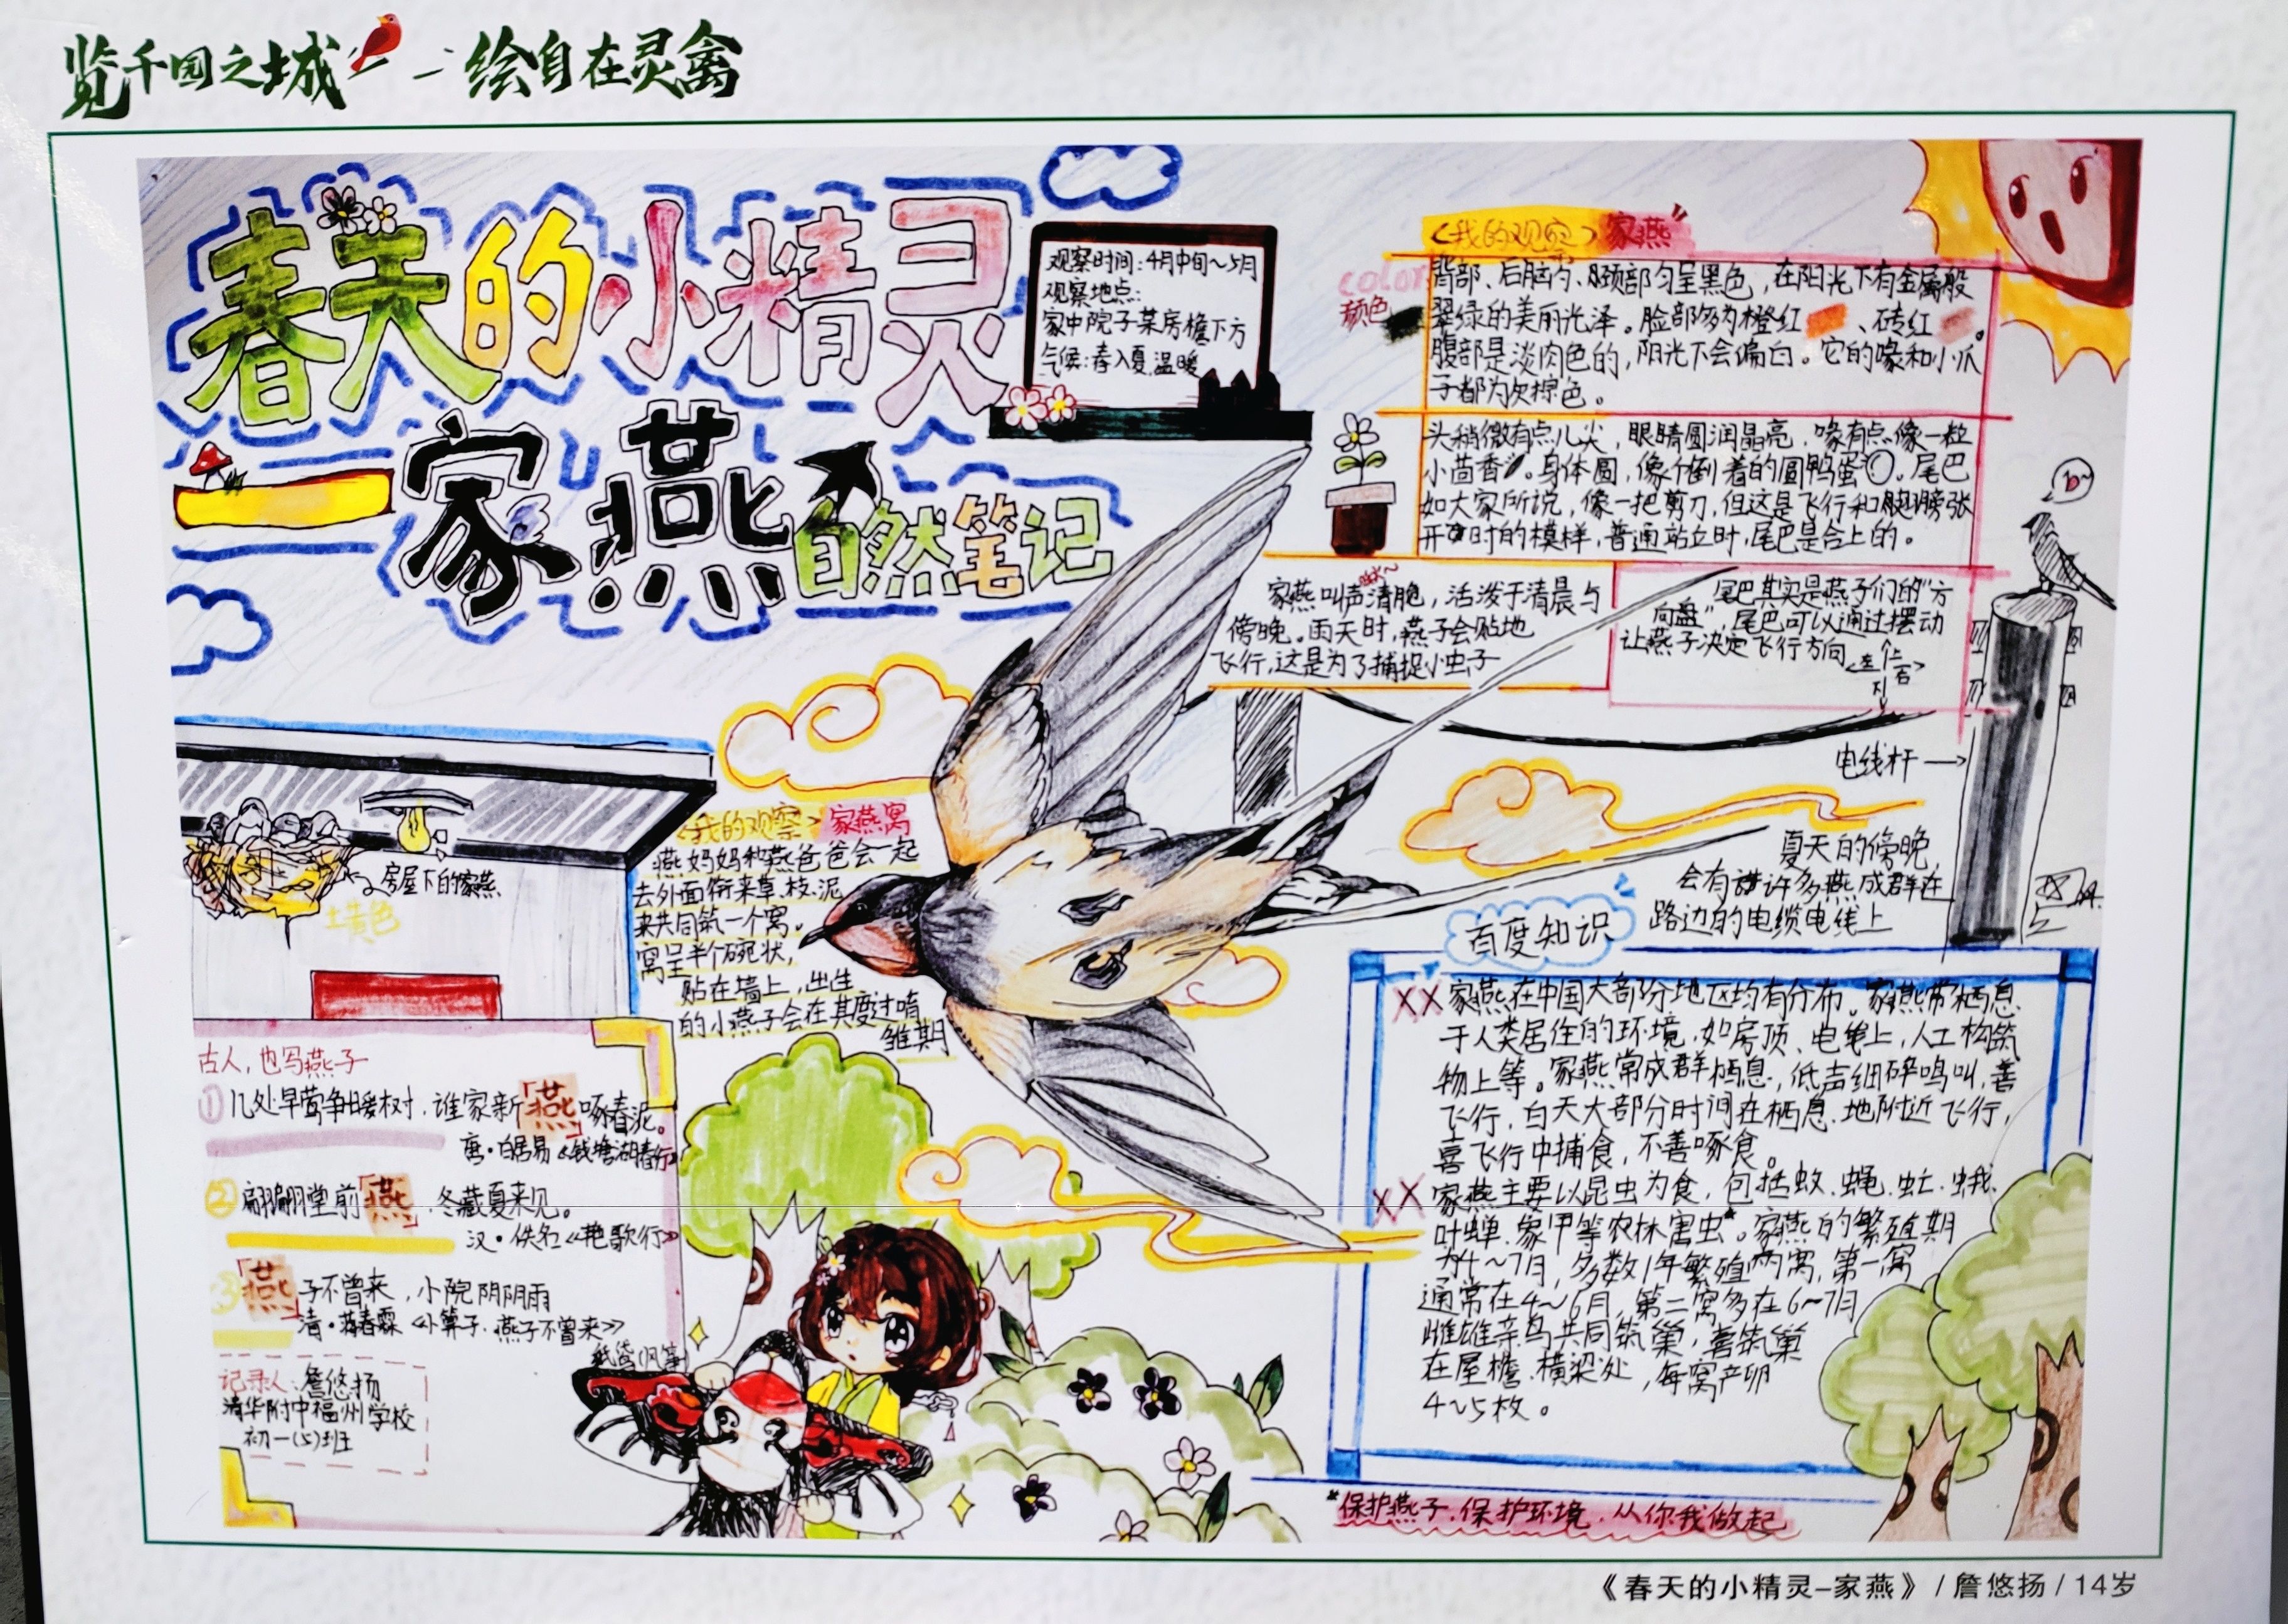 览千园之城——绘自在灵禽
春天的小精灵
——家燕自然笔记
观察时间：4月中旬～5月
观察地点：
家中院子某房檐下方
气候：春入夏，温暖
<我的观察>家燕
color
颜色
背部、后脑勺、颈部匀呈黑色，在阳光下有金属般
翠绿的美丽光泽。脸部多为橙红、砖红。
腹部是淡肉色的，阳光下会偏白。它的喙和小爪
子都为灰棕色。
头稍微有点儿尖，眼睛圆润晶亮，喙有点像一粒
小茴香。身体圆，像个倒着的圆鸭蛋。尾巴
如大家所说，像一把剪刀，但这是飞行和翅膀张
开时的模样，普通站立时，尾巴是合上的。
家燕叫声清脆，活泼于清晨与
傍晚。雨天时，燕子会贴地
飞行，这是为了捕捉小虫子
尾巴其实是燕子们的“方
向盘”，尾巴可以通过摆动
让燕子决定飞行方向
左 右
电线杆
夏天的傍晚，
会有许多燕成群在
路边的电缆电线上
房屋下的家燕
土黄色
<我的观察>家燕窝
燕妈妈和燕爸爸会一起
去外面衔来草、枝、泥
来共同筑一个窝。
窝呈半个碗状，
贴在墙上，出生
的小燕子会在其度过哺
雏期
百度知识
XX家燕在中国大部分地区均有分布。家燕常栖息
于人类居住的环境，如房顶、电线上，人工构筑
物上等。家燕常成群栖息，低声细碎鸣叫，善
飞行，白天大部分时间在栖息地附近飞行，
喜飞行中捕食，不善啄食。
XX家燕主要以昆虫为食，包括蚊、蝇、虻、蛾、
叶蝉、象甲等农林害虫。家燕的繁殖期
为4～7月，多数1年繁殖两窝，第一窝
通常在4～6月，第二窝多在6～7月
雌雄亲鸟共同筑巢，喜筑巢
在屋檐、横梁处，每窝产卵
4～5枚。
古人，也写燕子
①几处早莺争暖树，谁家新「燕」啄春泥。
唐·白居易《钱塘湖春行》
②翩翩堂前「燕」，冬藏夏来见。
汉·佚名《艳歌行》
③「燕」子不曾来，小院阴阴雨
清·蒋春霖《卜算子·燕子不曾来》
纸鸢(风筝)
记录人：詹悠扬
清华附中福州学校
初一(5)班
*保护燕子，保护环境，从你我做起
《春天的小精灵-家燕》/詹悠扬/14岁